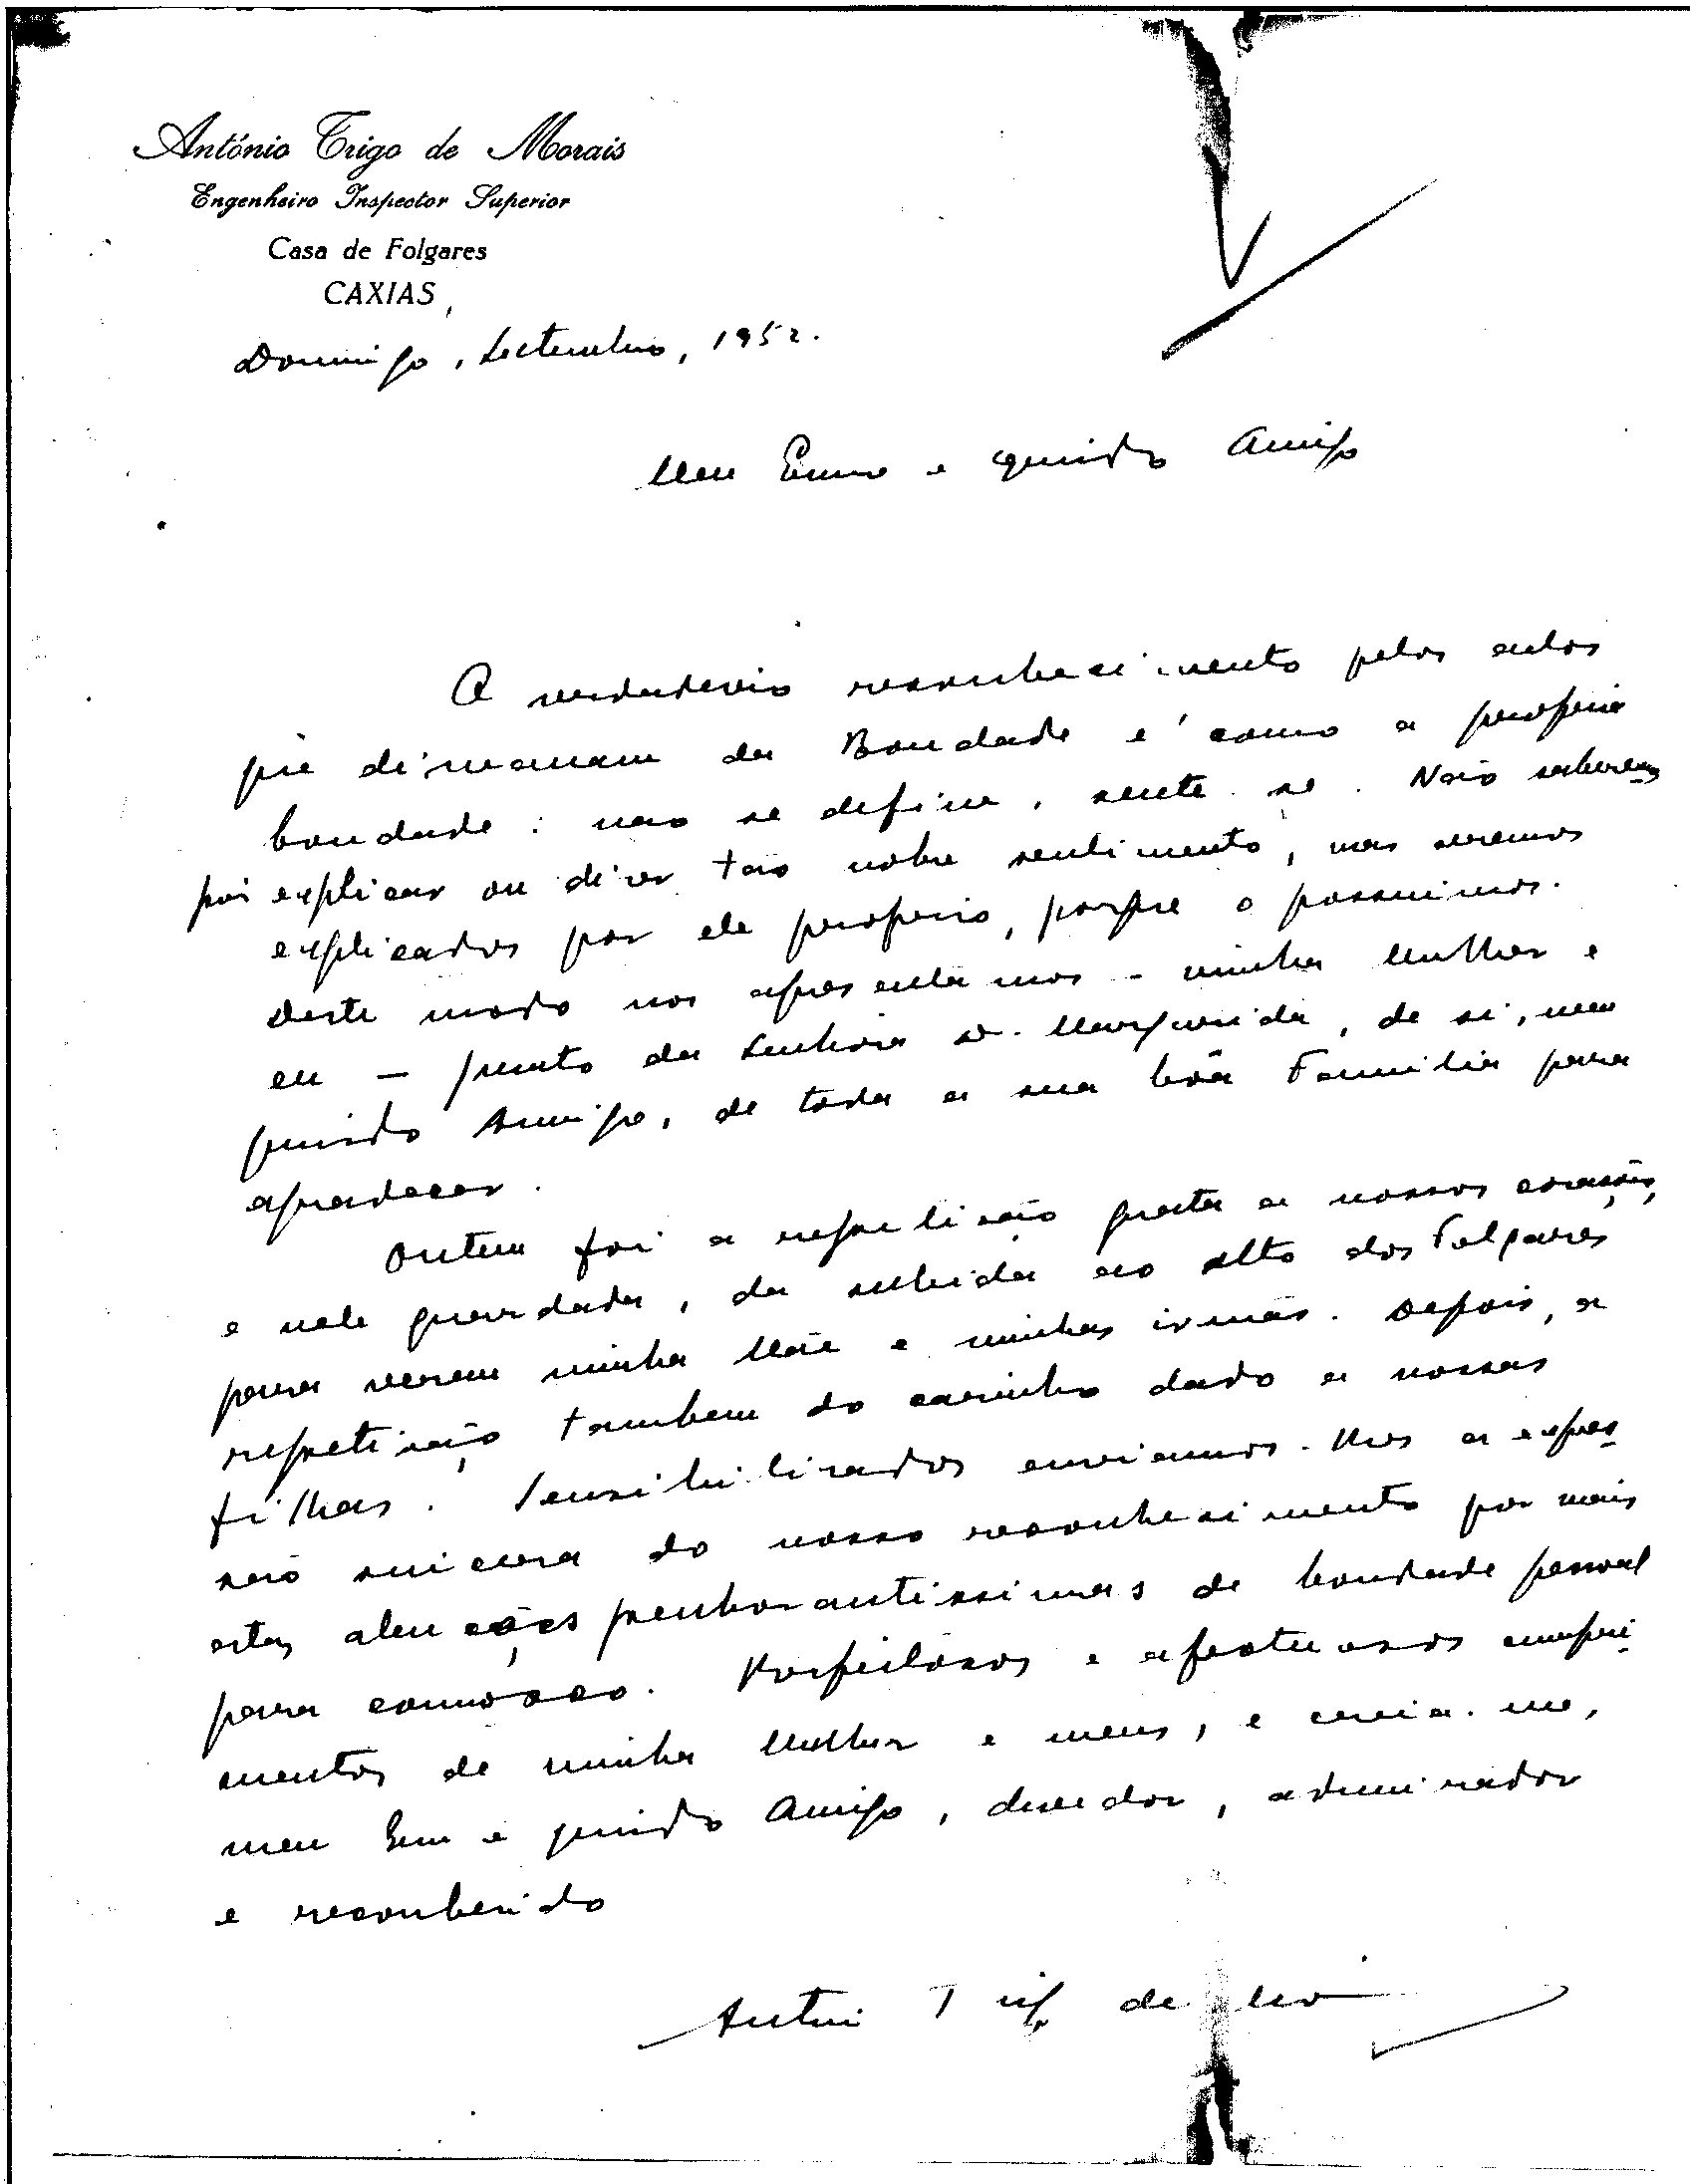 António Trigo de Morais
Engenheiro Inspector Superior
Casa de Folgares
CAXIAS
Domingo, Setembro, 1952.
Meu Exmo e querido Amigo
O verdadeiro reconhecimento pelos actos
que dimanam da Bondade é como a propria
bondade: não se define, sente-se. Não saberemos
pois explicar ou dizer tão nobre sentimento, mas seremos
explicados por ele proprio, porque o possuimos.
Deste modo nos apresentamos - minha Mulher e
eu — junto da Senhora D. Margarida, de si, meu
querido Amigo, de toda a sua bôa Familia para
agradecer.
Ontem foi a repetição grata a nossos corações,
e nele guardada, da subida ao alto dos Folgares
para verem minha Mãe e minhas irmãs. Depois, a
repetição tambem do carinho dado a nossas
filhas. Sensibilizados enviamos-lhes a expres
são sincera do nosso reconhecimento por mais
estas atenções penhorantissimas de bondade pessoal
para connosco. Respeitosos e afectuosos cumpri
mentos de minha Mulher e meus, e creia-me,
meu Bom e querido Amigo, devedor, admirador
e reconhecido
António Trigo de Morais